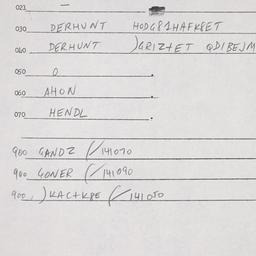 021
030 DERHUNT HODGP1HAFKPET
040 DERHUNT )GRIZ+ET QDIBEJM
050 0
060 AHON
070 HENDL
900 GANDZ (/141070
900 GONER (/141090
900 )KAC+KPE (/141050